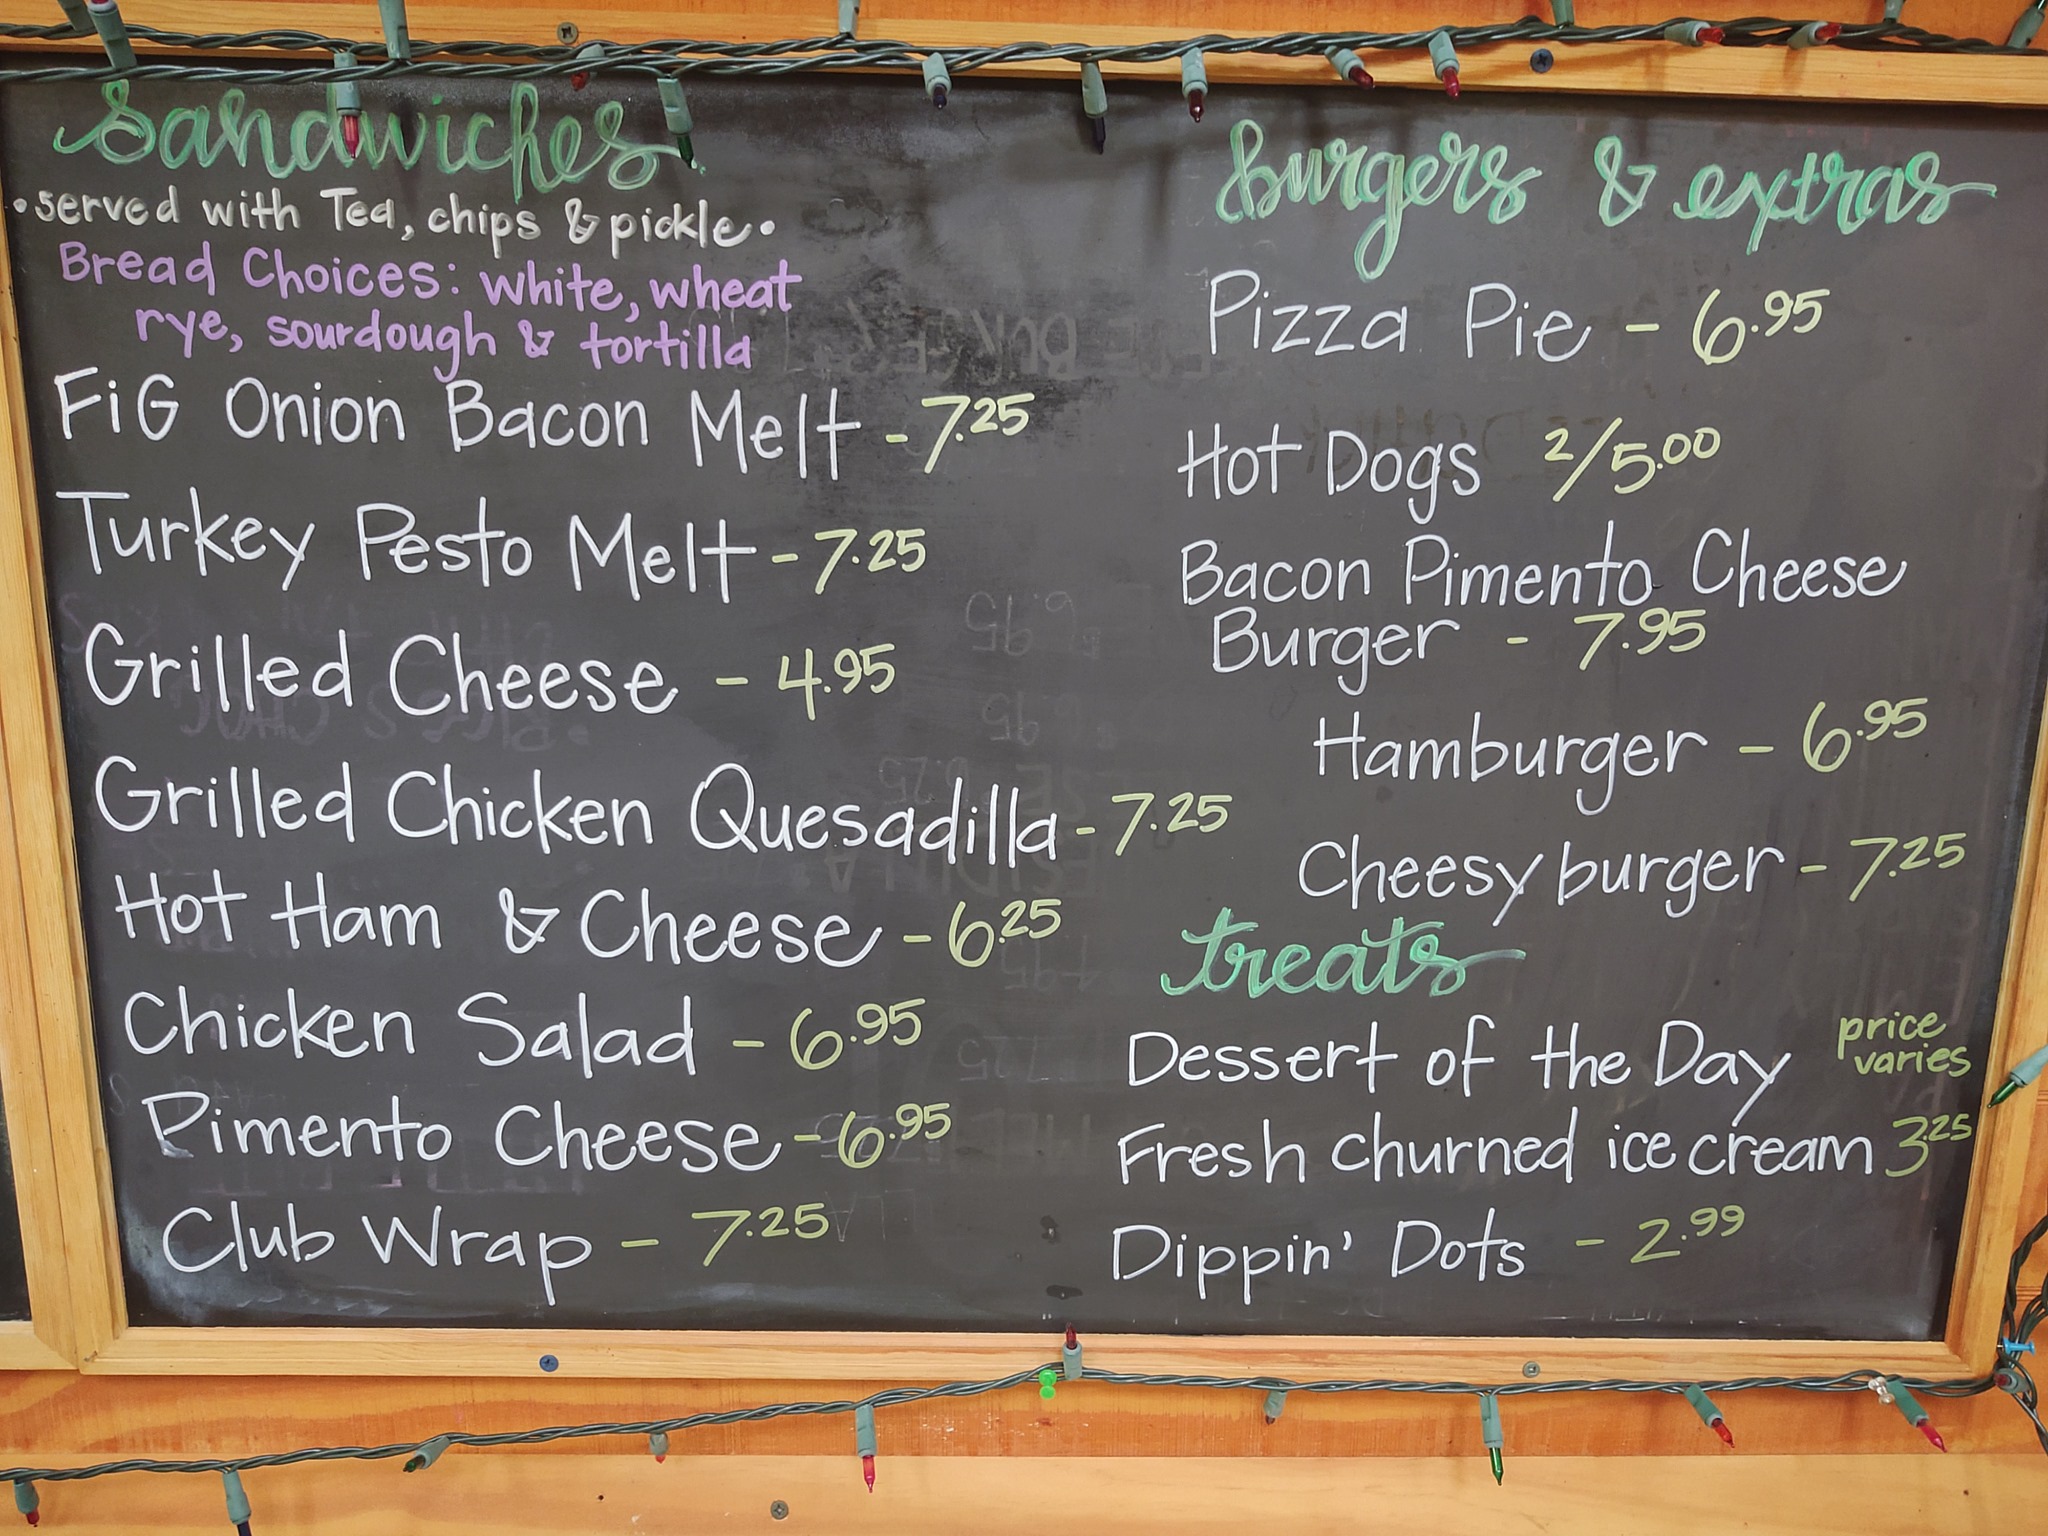 Sandwiches
•served with Tea, chips & pickle•
Bread Choices: white, wheat
rye, sourdough & tortilla
FiG Onion Bacon Melt - 7.25
Turkey Pesto Melt - 7.25
Grilled Cheese - 4.95
Grilled Chicken Quesadilla - 7.25
Hot Ham & Cheese - 6.25
Chicken Salad - 6.95
Pimento Cheese - 6.95
Club Wrap - 7.25
burgers & extras
Pizza Pie - 6.95
Hot Dogs 2/5.00
Bacon Pimento Cheese
Burger - 7.95
Hamburger - 6.95
Cheesy burger - 7.25
treats
Dessert of the Day price varies
Fresh churned ice cream 3.25
Dippin' Dots - 2.99